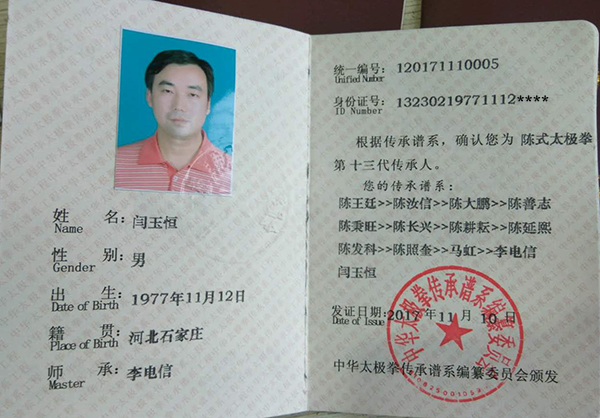 姓名：闫玉恒
Name
性别：男
Gender
出生：1977年11月12日
Date of Birth
籍贯：河北石家庄
Place of Birth
师承：李电信
Master
统一编号：120171110005
Unified Number
身份证号：13230219771112****
ID Number
根据传承谱系，确认您为 陈式太极拳
第十三代传承人。
您的传承谱系：
陈王廷>>陈汝信>>陈大鹏>>陈善志
陈秉旺>>陈长兴>>陈耕耘>>陈延熙
陈发科>>陈照奎>>马虹>>李电信
闫玉恒
发证日期：2017年11月10日
Date of Issue
中华太极拳传承谱系编纂委员会
中华太极拳传承谱系编纂委员会颁发